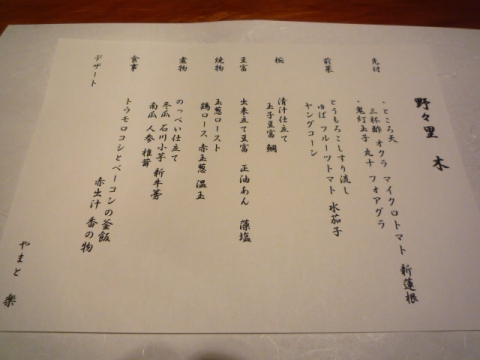 野々里 木
先付
・ところ天
三杯酢 オクラ マイクロトマト 新蓮根
・鬼灯玉子 丸十 フォアグラ
前菜
とうもろこしすり流し
ゆば フルーツトマト 水茄子
ヤングコーン
椀
清汁仕立て
玉子豆富 鱧
豆富
出来立て豆富 正油あん 藻塩
焼物
玉葱ロースト
鶏ロース 赤玉葱 温玉
煮物
のっぺい仕立て
冬瓜 石川小芋 新牛蒡
南瓜 人参 椎茸
食事
トウモロコシとベーコンの釜飯
赤出汁 香の物
デザート
やまと 楽